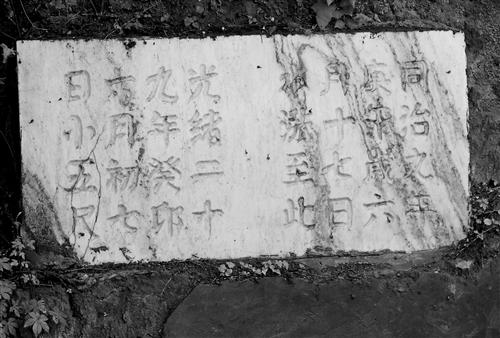 同治九年
庚午歲六
月十七日
水漲至此
光緒二十
九年癸卯
六月初七
日小五尺